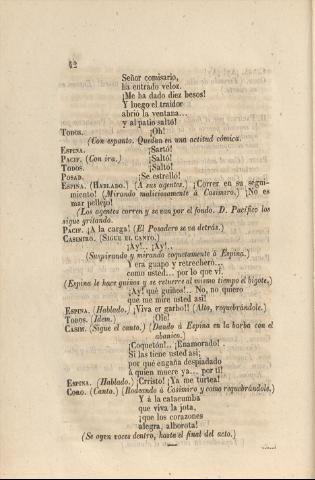 42
Señor comisario,
ha entrado veloz.
¡Me ha dado diez besos!
Y luego el traidor
abrió la ventana...
y al patio saltó!
TODOS. ¡Oh!
(Con espanto. Quedan en una actitud cómica.
ESPINA. ¡Sartó!
PACIF. (Con ira.) ¡Saltó!
TODOS. ¡Saltó!
POSAD. ¡Se estrelló!
ESPINA. (HABLADO.) (A sus agentes.) ¡Correr en su segui-
miento! (Mirando maliciosamente á Casimiro.) ¡No es
mar pellejo!
(Los agentes corren y se van por el fondo. D. Pacífico los
sigue gritando.
PACIF. ¡A la carga! (El Posadero se va detrás.)
CASIMIRO. (SIGUE EL CANTO.)
¡Ay!.. ¡Ay!..
(Suspirando y mirando coquetamente á Espina.)
Y era guapo y retrechero...
como usted... por lo que ví.
(Espina le hace guiños y se retuerce al mismo tiempo el bigote.)
¡Ay! qué guiños!.. No, no quiero
que me mire usted así!
ESPINA. (Hablado.) ¡Viva er garbo!! (Alto, requebrándole.)
TODOS. (Idem.) ¡Ole!
CASIM. (Sigue el canto.) (Dando á Espina en la barba con el
abanico.)
¡Coquetón!.. ¡Enamorado!
Si las tiene usted así;
por qué engaña despiadado
á quien muere ya... por tí!
ESPINA. (Hablado.) ¡Crristo! ¡Ya me turtea!
CORO. (Canta.) (Rodeando á Casimiro y como requebrándole.)
Y á la catacumba
que viva la jota,
¡que los corazones
alegra, alborota!
(Se oyen voces dentro, hasta el final del acto.)